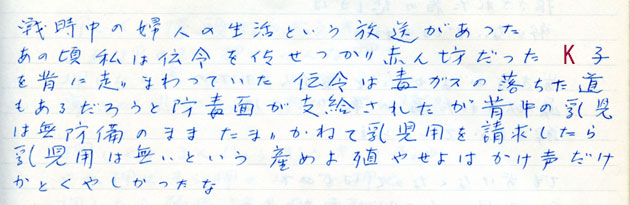 戦時中の婦人の生活という放送があった
あの頃私は伝令を仰せつかり赤ん坊だったK子
を背に走りまわっていた伝令は毒ガスの落ちた道
もあるだろうと防毒面が支給されたが背中の乳児
は無防備のままたまりかねて乳児用を請求したら
乳児用は無いという産めよ殖やせよはかけ声だけ
かとくやしかったな